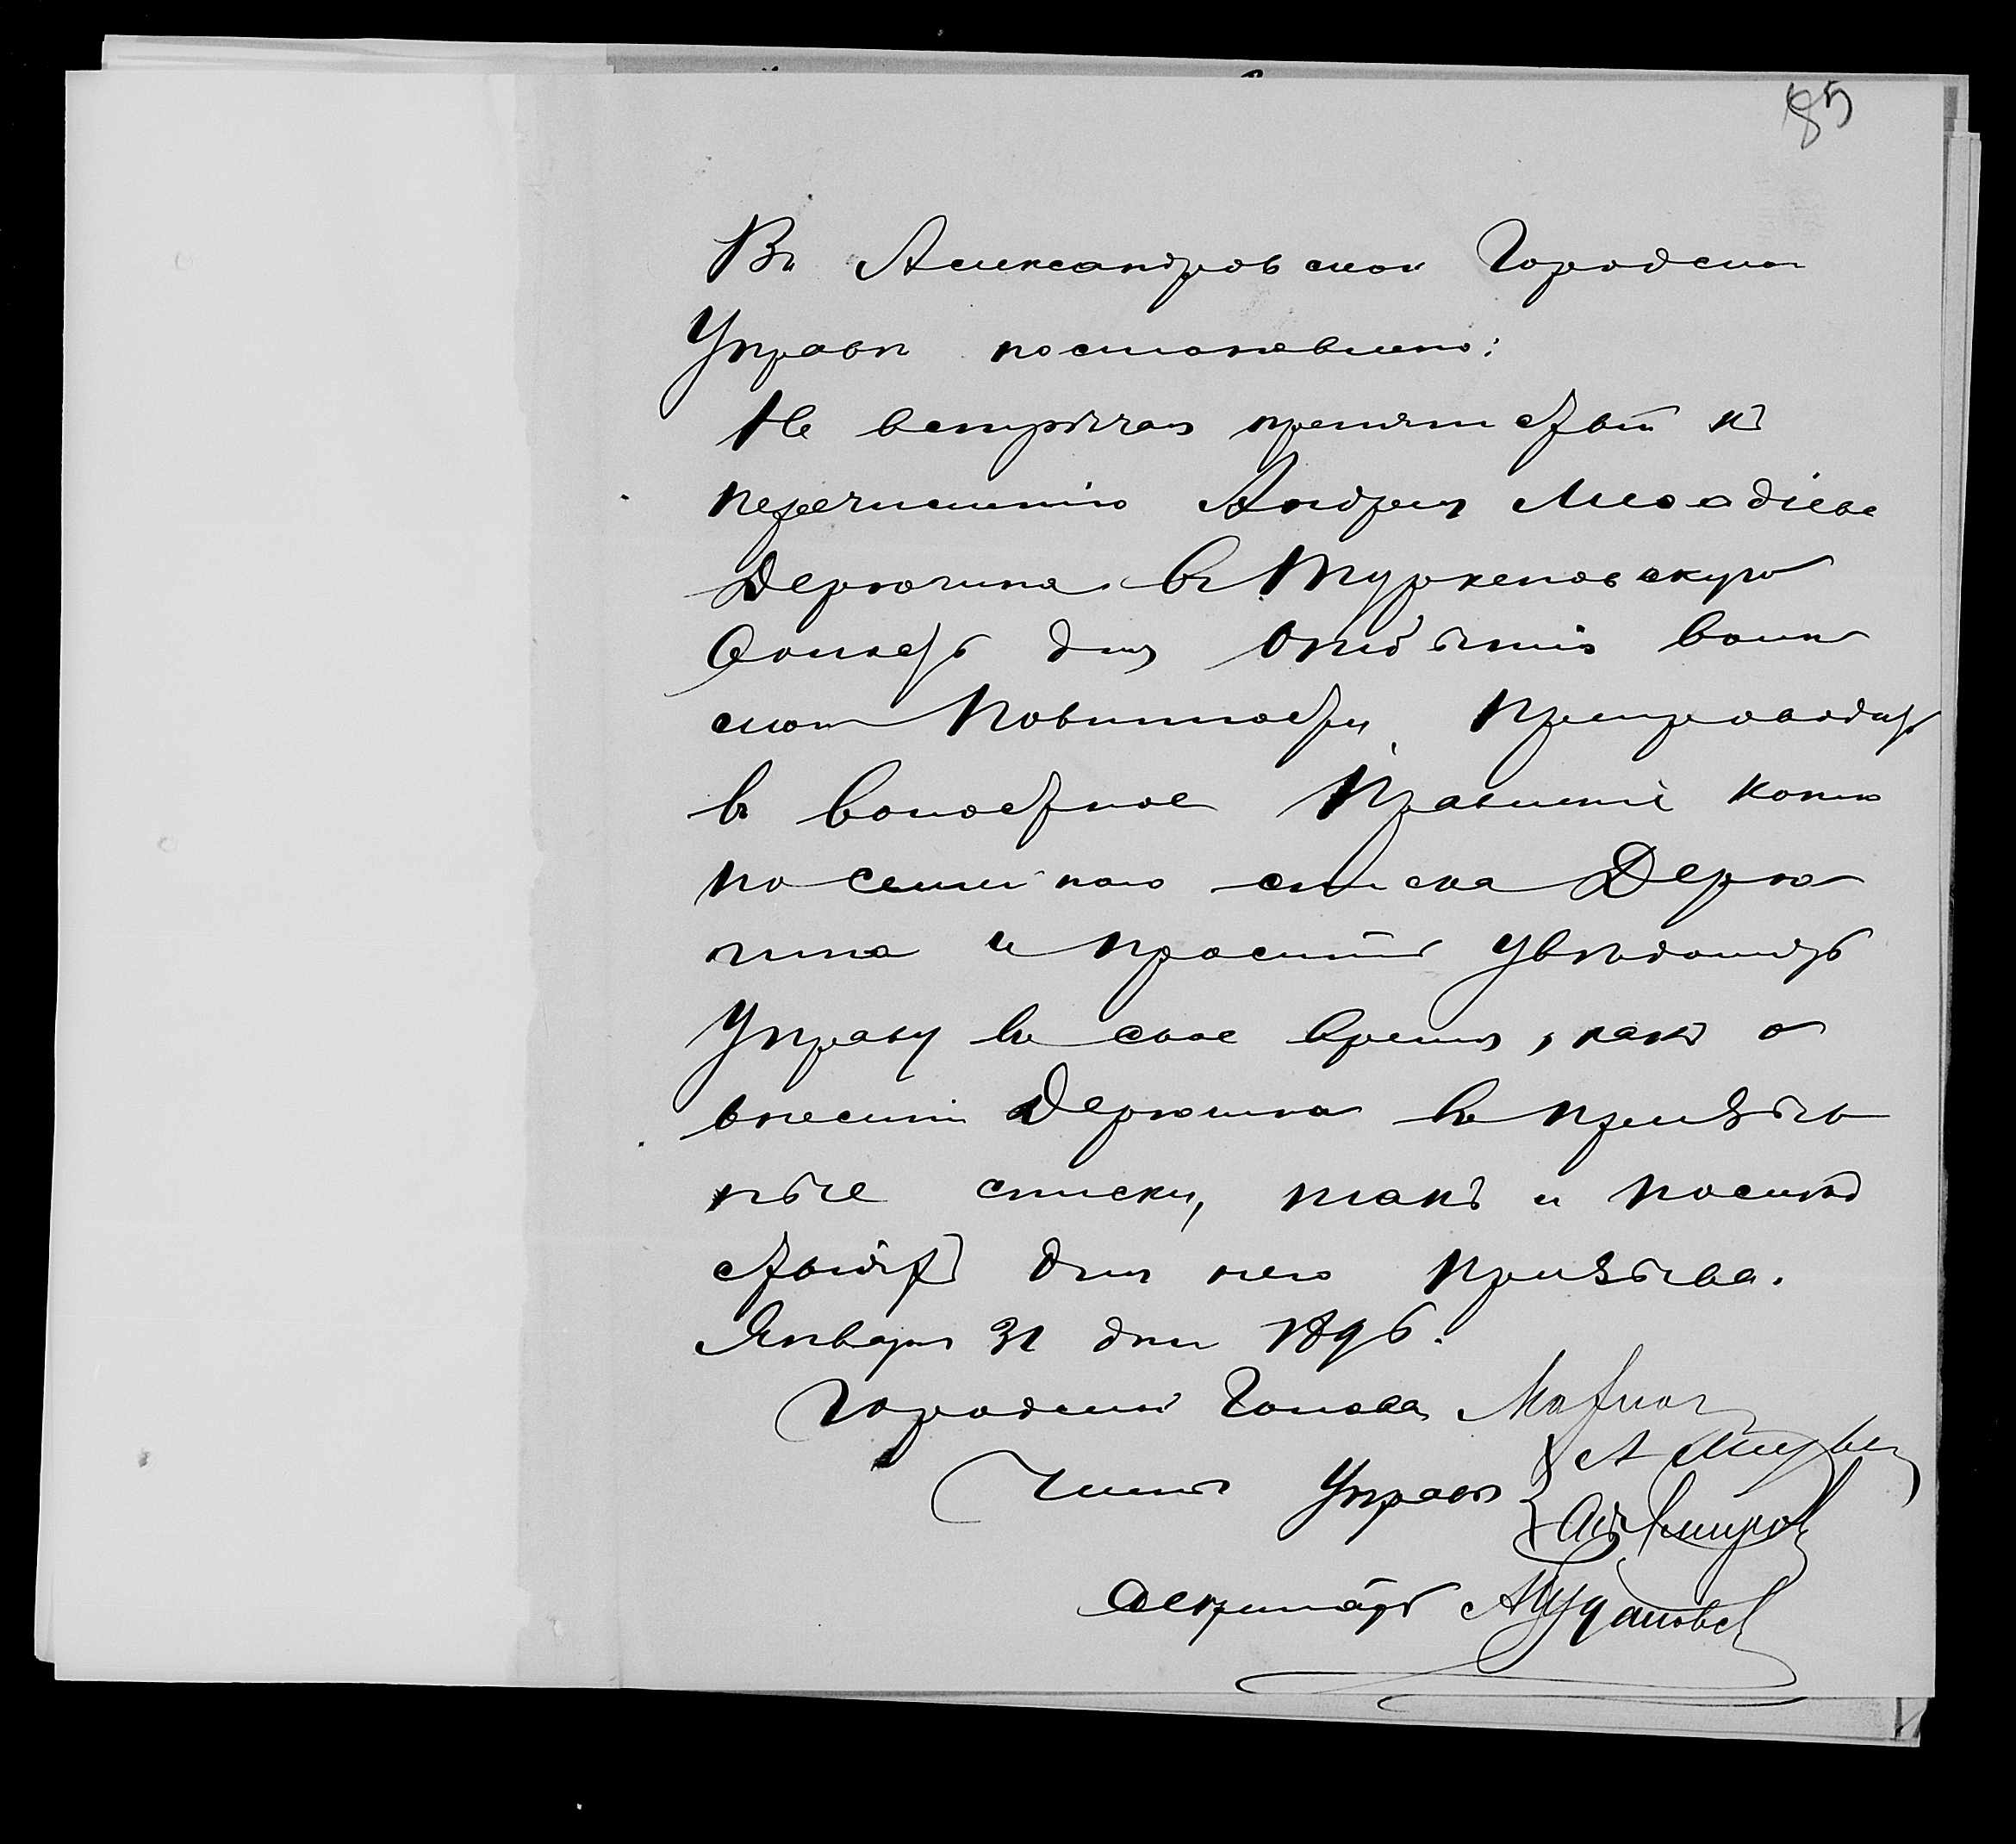 85
Въ Александровской Городской
Управѣ постановлено:
Не встрѣчая препятствій къ
перечисленію Андрея
Дерюгина въ Туркеновскую
волость для отбытія воин
ской Повинности, препроводить
въ волостное Правленіе копію
посемейнаго списка Дерю
гина и просить увѣдомить
Управу въ свое время, какъ о
внесеніи Дерюгина въ призыв
ные списки, такъ и послѣд
ствіяхъ для него призыва.
Января 31 дня 1896.
Городской Голова
Члены Управы
Секретарь